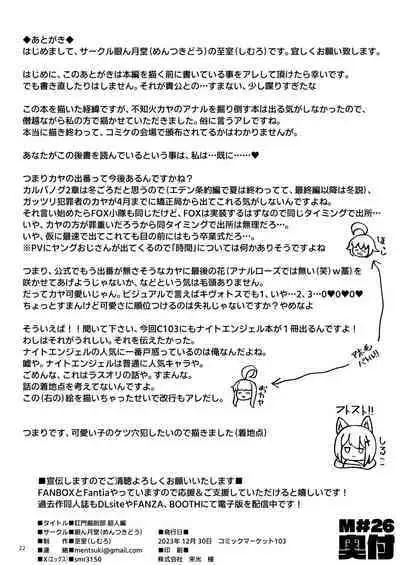 ◆あとがき◆
はじめまして、サークル眼ん月堂(めんつきどう)の至室(しむろ)です。宜しくお願い致します。
はじめに、このあとがきは本編を描く前に書いている事をアレして頂けたら幸いです。
でも書き直したりはしません。それが貴公との…すまない、少し喋りすぎたな
この本を描いた経緯ですが、不知火カヤのアナルを掘り倒す本は出る気がしなかったので、
僭越ながら私の方で描かせていただきました。俗に言うアレですね。
本当に描き終わって、コミケの会場で頒布されてるかはわかりませんが。
あなたがこの後書を読んでいるという事は、私は…既に……♥
つまりカヤの出番って今後あるんですかね?
カルバノグ2章は冬ごろだと思うので(エデン条約編で夏は終わってて、最終編以降は冬説)、
ガッツリ犯罪者のカヤが4月までに矯正局から出てこれる気がしないんですよね。
それ言い始めたらFOX小隊も同じだけど、FOXは実装するはずなので同じタイミングで出所…
いや、カヤの方が罪重いだろうから同タイミングで出所は無理だろ…。
いや、仮に最速で出てこれても目の前にはもう卒業式だろ…。
※PVにヤングおじさんが出てくるので「時間」については何かありそうですよね
つまり、公式でもう出番が無さそうなカヤに最後の花(アナルローズでは無い(笑)w蕾)を
咲かせてあげようじゃないか、などという気は毛頭ありません。
だってカヤ可愛いじゃん。ビジュアルで言えばキヴォトスでも1、いや…2、3…0♥0♥0♥
ちょっとすまんけど可愛さに順位つけるのは失礼じゃないですか?やめなよ
そういえば!!聞いて下さい、今回C103にもナイトエンジェル本が1冊出るんですよ!
わしはそれがうれしい。それを伝えたかった。
ナイトエンジェルの人気に一番戸惑っているのは俺なんだよね。
嘘や。ナイトエンジェルは普通に人気キャラや。
ごめんな、これはラスオリの話や。すまんな。
話の着地点を考えてないんですよ。
この(右の)絵を描いちゃったせいで改行もアレだし。
つまりです、可愛い子のケツ穴犯したいので描きました(着地点)
■宣伝しますのでご清聴よろしくお願いいたします■
FANBOXとFantiaやっていますので応援&ご支援していただけると嬉しいです!
過去作同人誌もDLsiteやFANZA、BOOTHにて電子版を配信中です!
■タイトル■肛門掘削部 超人編
■サークル■眼ん月堂(めんつきどう)
■制 作■至室(しむろ)
■連 絡■mentsuki@gmail.com
■X(エックス)■smr3150
■発行日■
2023年12月30日 コミックマーケット103
■印 刷■
株式会社 栄光 様
22
フトスト!!
M#26
奥付